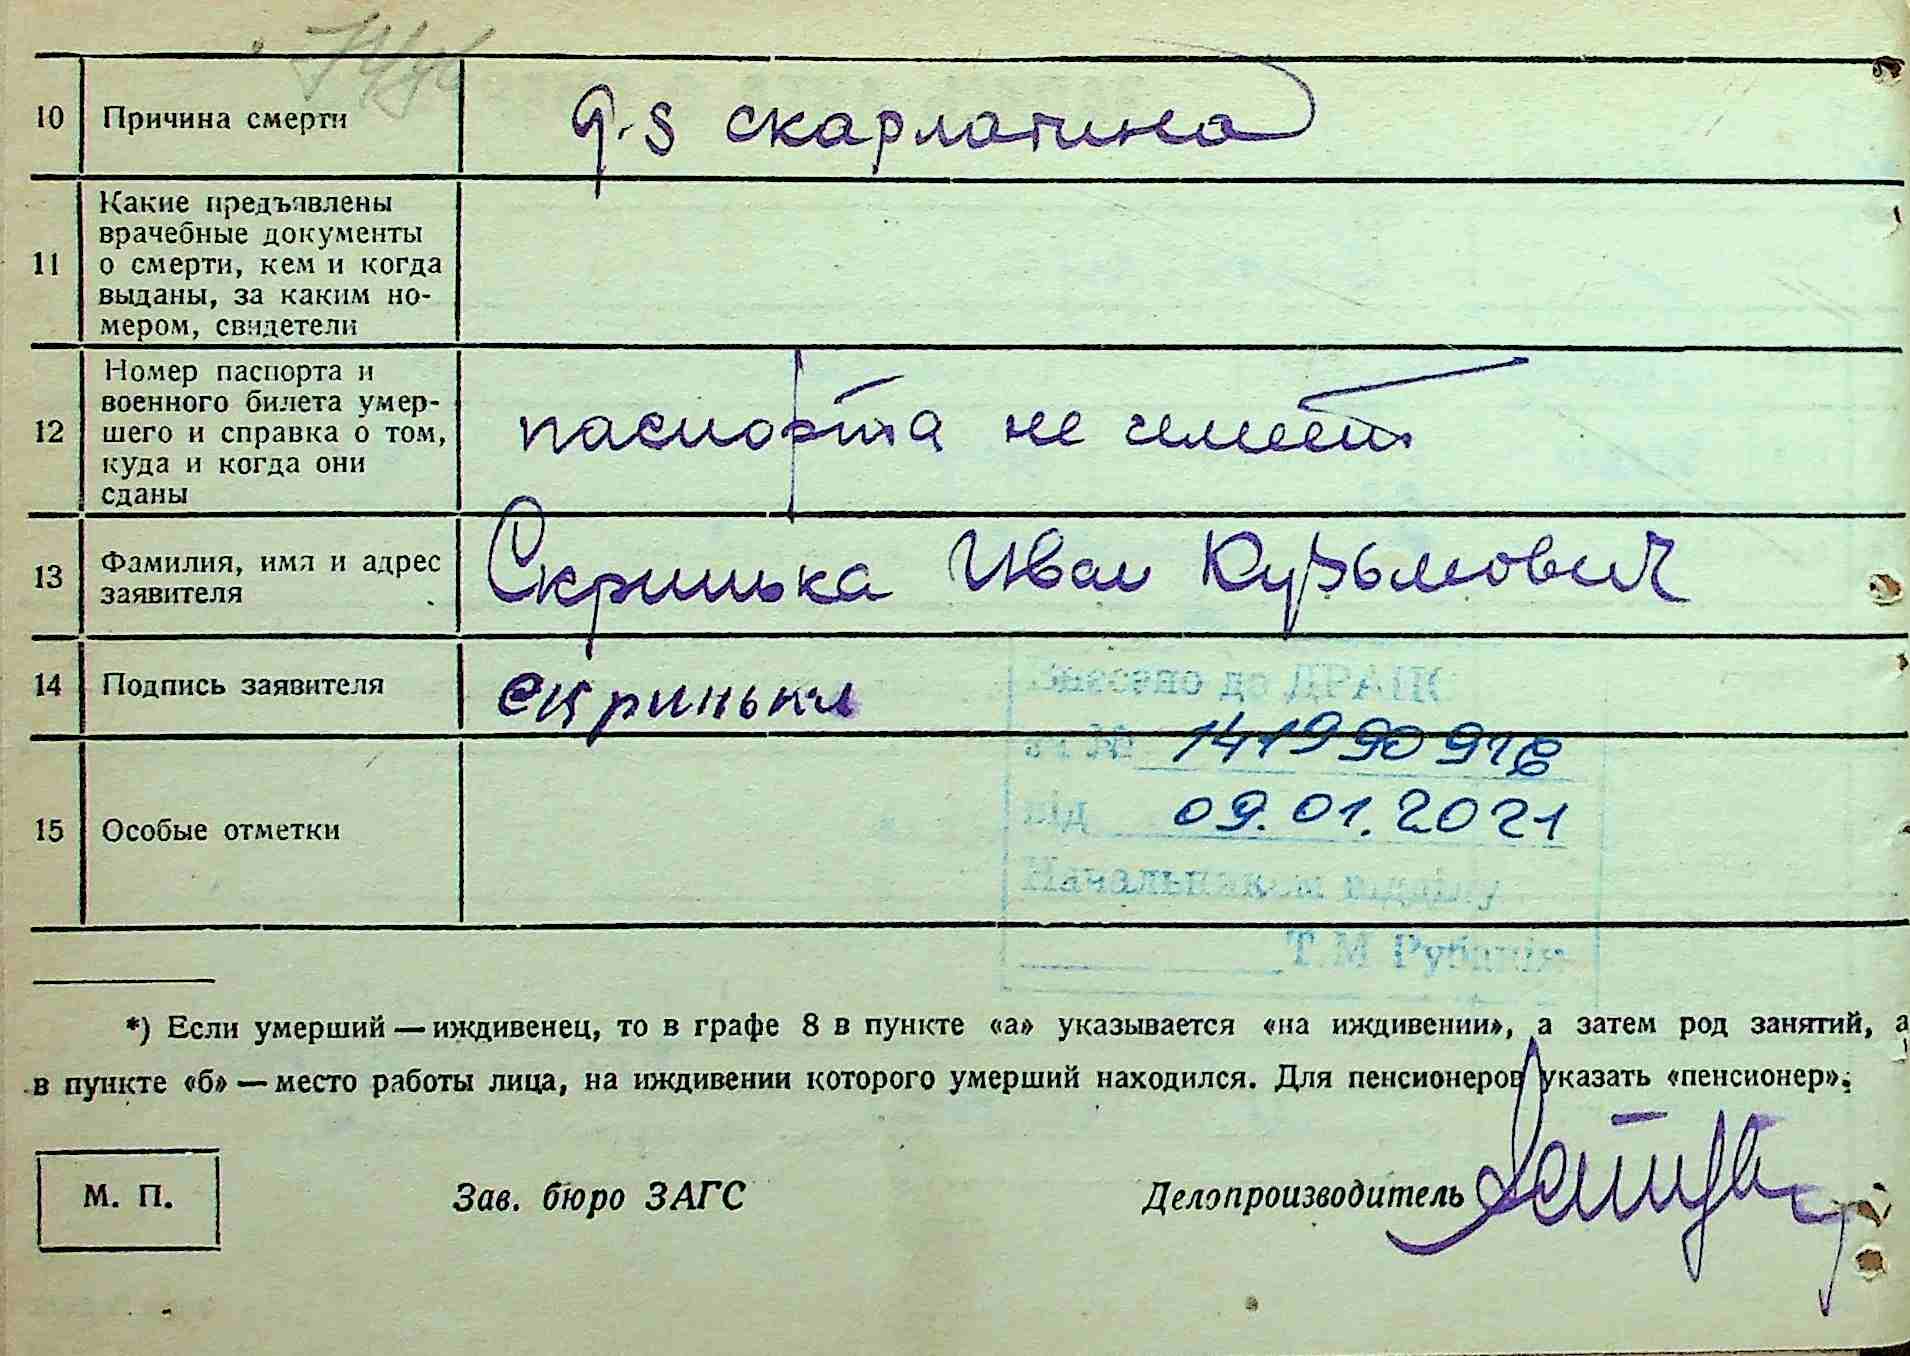 10 Причина смерти d-s скарлатина
Какие предъявлены
врачебные документы
11 о смерти, кем и когда
выданы, за каким но-
мером, свидетели
Номер паспорта и
военного билета умер-
12 шего и справка о том, паспорта не имеет
куда и когда они
сданы
13 Фамилия, имя и адрес Скринька Иван Кузьмович
заявителя
14 Подпись заявителя скринька
Внесено до ДРАЦС
за №
від 09.01.2021
15 Особые отметки
Начальником відділу
Т.М
*) Если умерший — иждивенец, то в графе 8 в пункте «а» указывается «на иждивении», а затем род занятий, а
в пункте «б» — место работы лица, на иждивении которого умерший находился. Для пенсионеров указать «пенсионер».
М. П. Зав. бюро ЗАГС Делопроизводитель